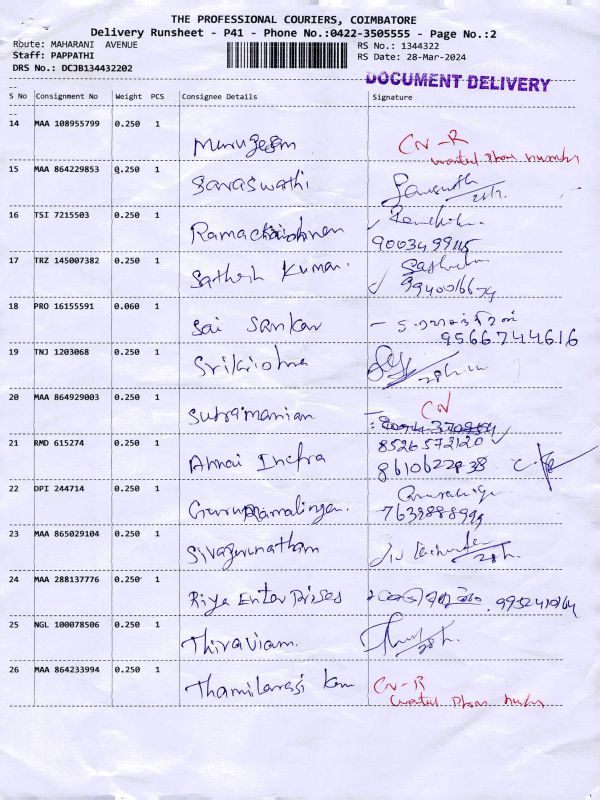 THE PROFESSIONAL COURIERS, COIMBATORE
Delivery Runsheet - P41 - Phone No.:0422-3505555 - Page No.:2
Route: MAHARANI AVENUE RS No.: 1344322
Staff: PAPPATHI RS Date: 28-Mar-2024
DRS No.: DCJB134432202
DOCUMENT DELIVERY
S No Consignment No Weight PCS Consignee Details Signature
14 MAA 108955799 0.250 1
Murugesan CN-R
wanted phone number
15 MAA 864229853 0.250 1
Saraswathi
16 TSI 7215503 0.250 1
Ramachrishnan
9003499115
17 TRZ 145007382 0.250 1
Sathish Kumar.
9940016674
18 PRO 16155591 0.060 1
Sai Sankar
9566744616
19 TNJ 1203068 0.250 1
Srikrishna
20 MAA 864929003 0.250 1
Subramanian CN
21 RMD 615274 0.250 1
8526572120
Annai Infra
22 DPI 244714 0.250 1
Gururamalingam
7639888999
23 MAA 865029104 0.250 1
Sivagurunatham
24 MAA 288137776 0.250 1
Riya Enterprises
25 NGL 100078506 0.250 1
Thiraviam.
26 MAA 864233994 0.250 1
Thamilarasi CN-R
wanted phone number